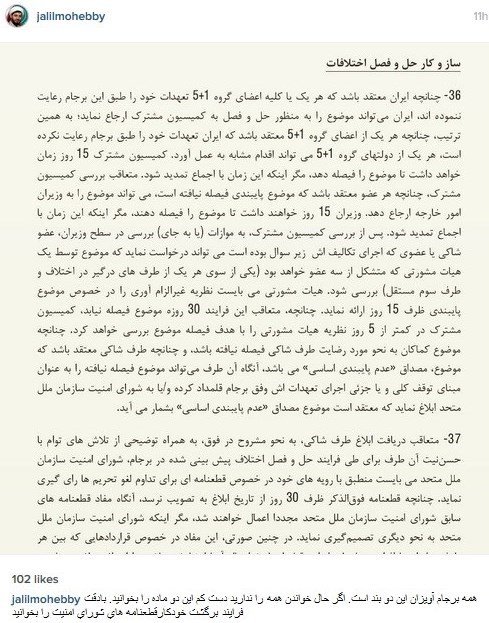 jalilmohebby
11h
ساز و کار حل و فصل اختلافات
36- چنانچه ایران معتقد باشد که هر یک یا کلیه اعضای گروه 1+5 تعهدات خود را طبق این برجام رعایت
ننموده اند، ایران می‌تواند موضوع را به منظور حل و فصل به کمیسیون مشترک ارجاع نماید؛ به همین
ترتیب، چنانچه هر یک از اعضای گروه 1+5 معتقد باشد که ایران تعهدات خود را طبق برجام رعایت نکرده
است، هر یک از دولتهای گروه 1+5 می تواند اقدام مشابه به عمل آورد. کمیسیون مشترک 15 روز زمان
خواهد داشت تا موضوع را فیصله دهد، مگر اینکه این زمان با اجماع تمدید شود. متعاقب بررسی کمیسیون
مشترک، چنانچه هر عضو معتقد باشد که موضوع پایبندی فیصله نیافته است، می تواند موضوع را به وزیران
امور خارجه ارجاع دهد. وزیران 15 روز خواهند داشت تا موضوع را فیصله دهند، مگر اینکه این زمان با
اجماع تمدید شود. پس از بررسی کمیسیون مشترک، به موازات (یا به جای) بررسی در سطح وزیران، عضو
شاکی یا عضوی که اجرای تکالیف اش زیر سوال بوده است می تواند درخواست نماید که موضوع توسط یک
هیات مشورتی که متشکل از سه عضو خواهد بود (یکی از سوی هر یک از طرف های درگیر در اختلاف و
طرف سوم مستقل) بررسی شود. هیات مشورتی می بایست نظریه غیرالزام آوری را در خصوص موضوع
پایبندی ظرف 15 روز ارائه نماید. چنانچه، متعاقب این فرایند 30 روزه موضوع فیصله نیابد، کمیسیون
مشترک در کمتر از 5 روز نظریه هیات مشورتی را با هدف فیصله موضوع بررسی خواهد کرد. چنانچه
موضوع کماکان به نحو مورد رضایت طرف شاکی فیصله نیافته باشد، و چنانچه طرف شاکی معتقد باشد که
موضوع، مصداق «عدم پایبندی اساسی» می باشد، آنگاه آن طرف می‌تواند موضوع فیصله نیافته را به عنوان
مبنای توقف کلی و یا جزئی اجرای تعهدات اش وفق برجام قلمداد کرده و/یا به شورای امنیت سازمان ملل
متحد ابلاغ نماید که معتقد است موضوع مصداق «عدم پایبندی اساسی» بشمار می آید.
37- متعاقب دریافت ابلاغ طرف شاکی، به نحو مشروح در فوق، به همراه توضیحی از تلاش های توام با
حسن‌نیت آن طرف برای طی فرایند حل و فصل اختلاف پیش بینی شده در برجام، شورای امنیت سازمان
ملل متحد می بایست منطبق با رویه های خود در خصوص قطعنامه ای برای تداوم لغو تحریم ها رای گیری
نماید. چنانچه قطعنامه فوق‌الذکر ظرف 30 روز از تاریخ ابلاغ به تصویب نرسد، آنگاه مفاد قطعنامه های
سابق شورای امنیت سازمان ملل متحد مجددا اعمال خواهند شد، مگر اینکه شورای امنیت سازمان ملل
متحد به نحو دیگری تصمیم‌گیری نماید. در چنین صورتی، این مفاد در خصوص قراردادهایی که بین هر
102 likes
jalilmohebby همه برجام آویزان این دو بند است. اگر حال خواندن همه را ندارید دست کم این دو ماده را بخوانید. بادقت
فرایند برگشت خودکارقطعنامه هاي شوراي امنيت را بخوانيد